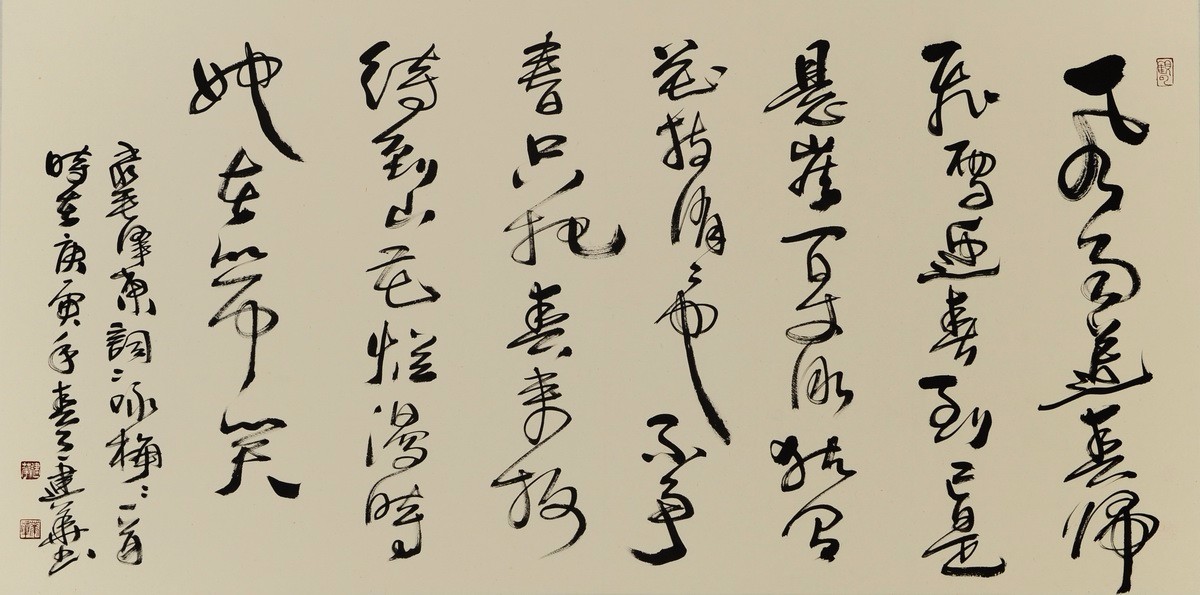 风雨送春归
飛雪迎春到已是
悬崖百丈冰犹有
花枝俏々也不争
春只把春来报
待到山花烂漫時
她在丛中笑
录毛泽东詞咏梅一首
時在庚寅年春月建華书